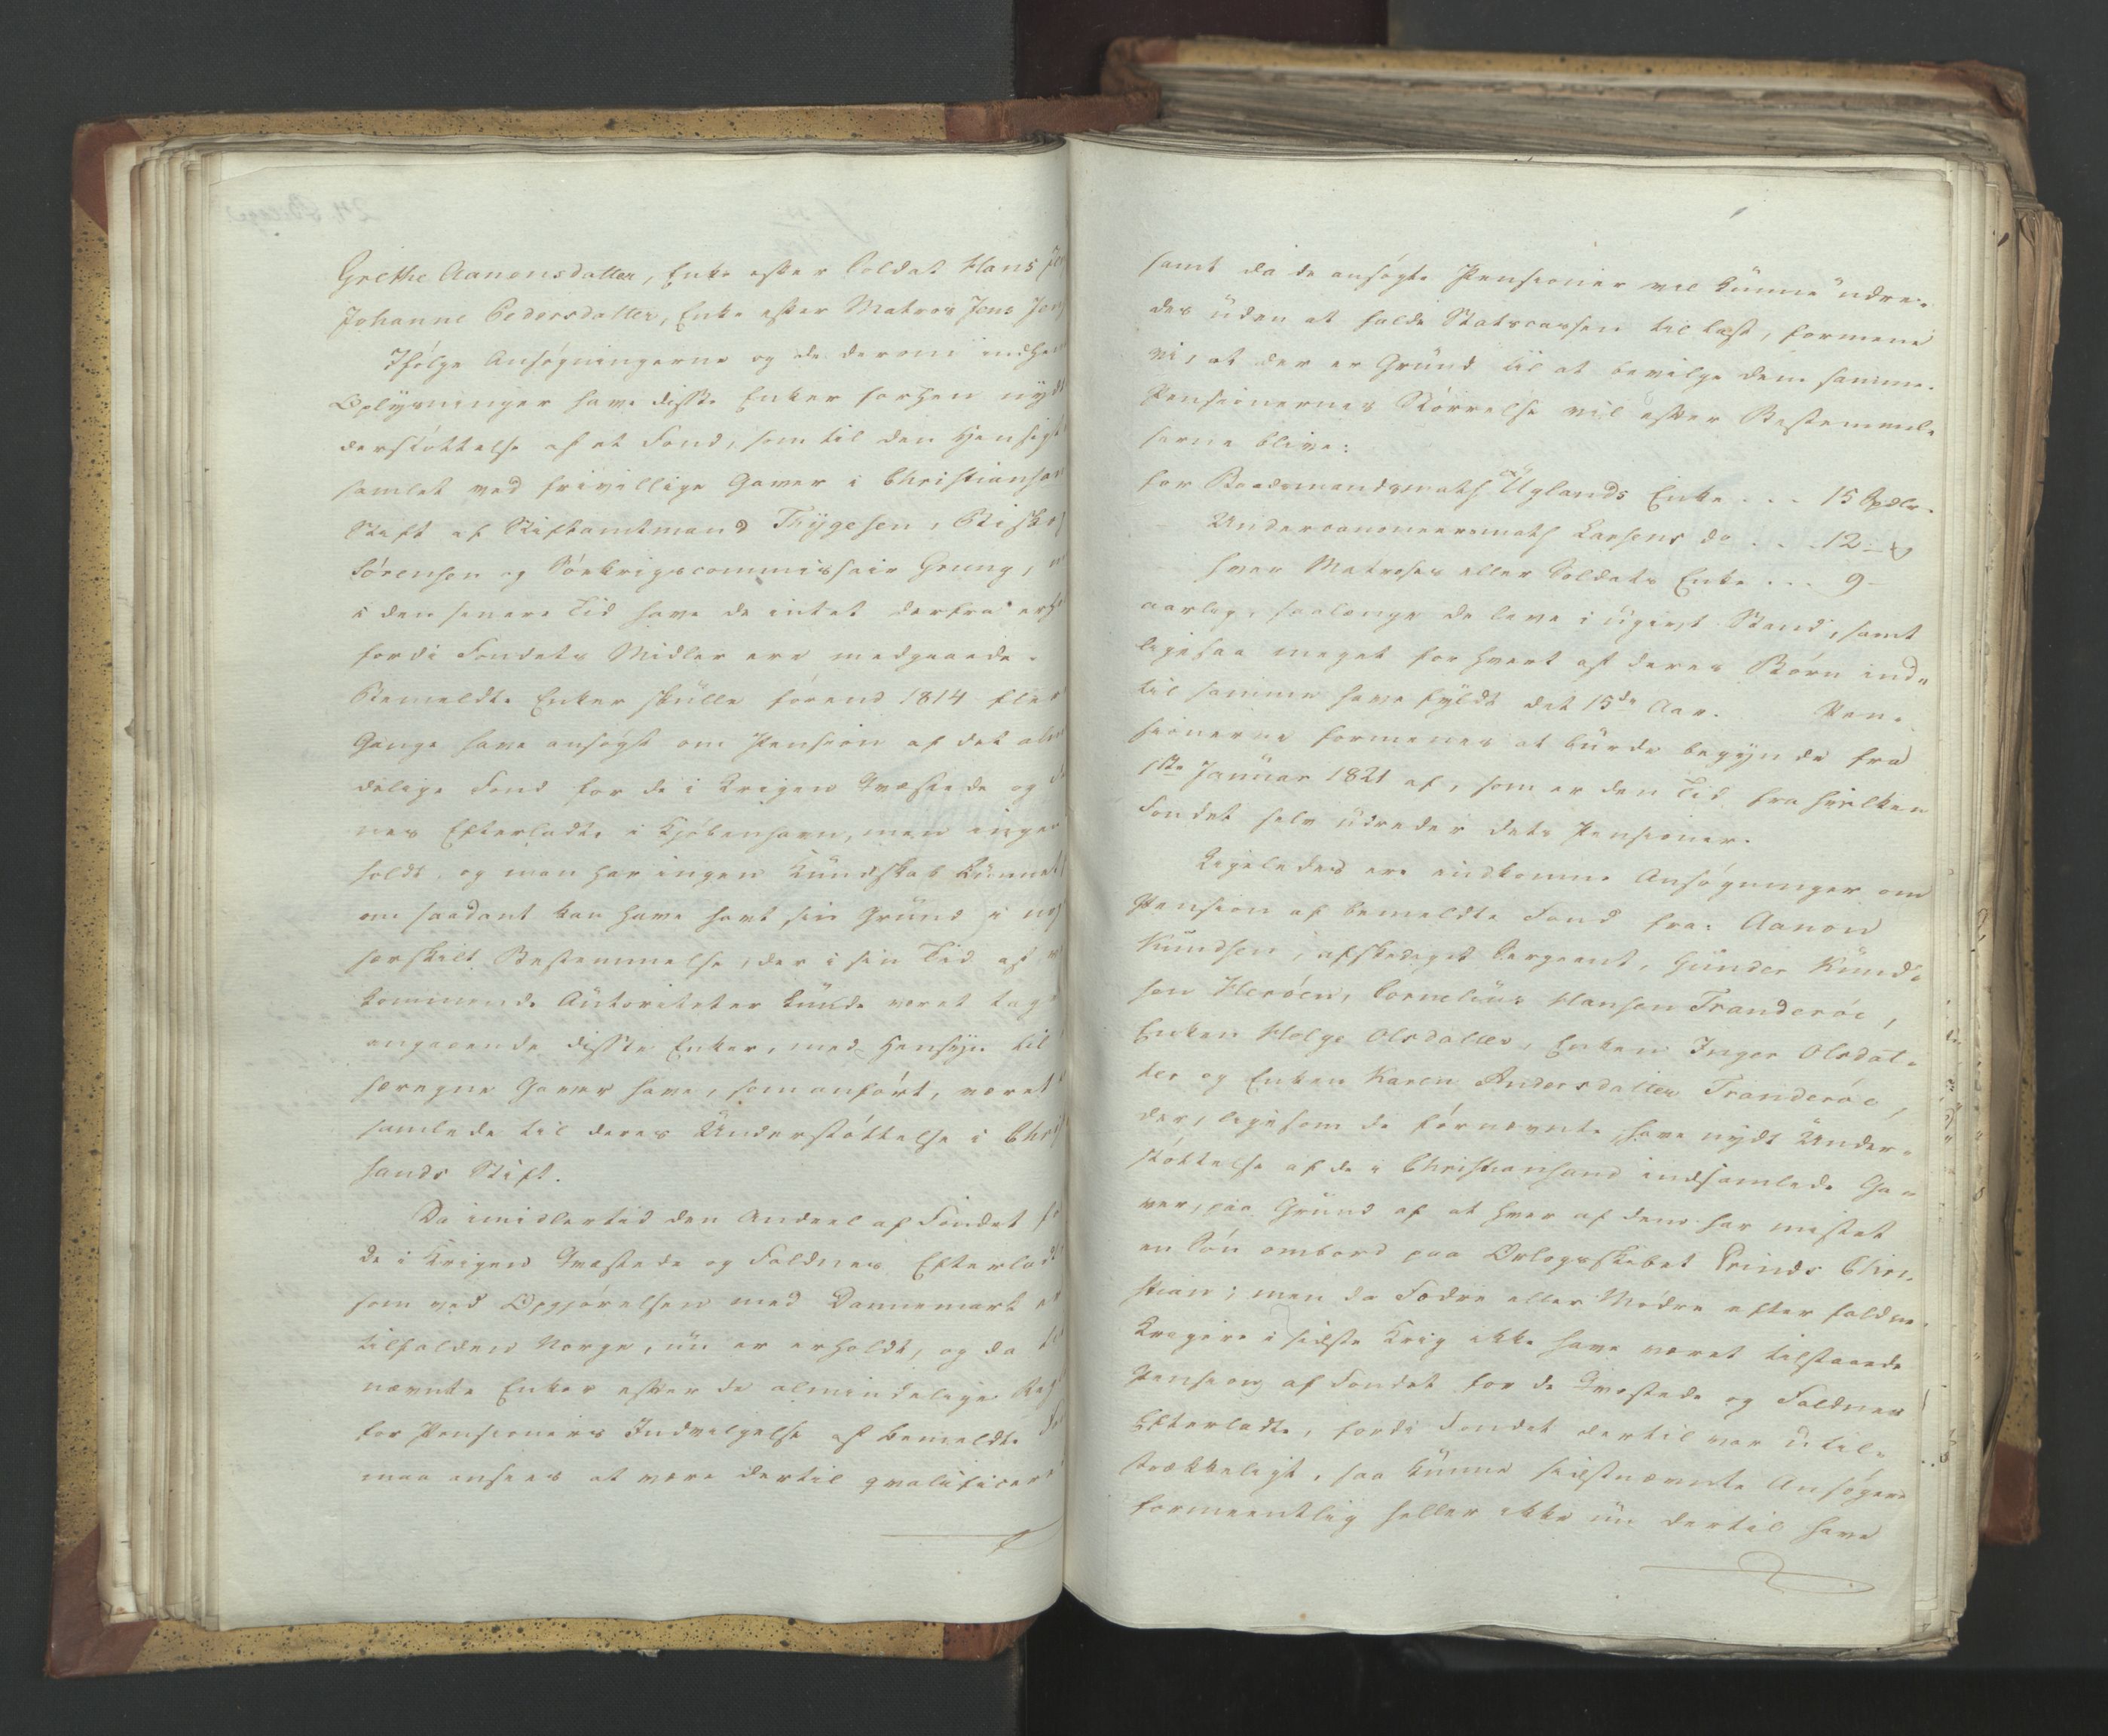 Grethe Aanensdatter, Enke efter Soldat Hans
Johanne Pedersdatter, Enke efter Matros Jens
Ifølge Ansøgningerne og de derom indhen
Oplysninger have disse Enker forhen nydt
derstøttelse af et Fond, som til den Hensigt
samlet ved frivillige Gaver i Christiansan
Stift af Stiftamtmand Thygesen, Biskop
Sørensen og Søekrigscommissair Grung,
i den senere Tid have de intet derfra erho
fordi Fondets Midler ere medgaaede.
Bemeldte Enker skulle førend 1814 flere
Gange have ansøgt om Pension af det almi
delige Fond for de i Krigen Qvæstede og
nes Efterladte i Kjøbenhavn, men ingen
holdt, og man har ingen Kundskab kunnet
om saadant kan have havt sin Grund i no
særskilt Bestemmelse, der i sin Tid af
kommende Autoriteter kunde været tag
angaaende disse Enker, med Hensyn til
særegne Gaver have, som anført, været
samlede til deres Understøttelse i Chris
sands Stift.
Da imidlertid den Andeel af Fondet fo
de i Krigen Qvæstede og Faldnes Efterladt
som ved Opgjørelsen med Dannemark er
tilfalden Norge, nu er erholdt, og da
nævnte Enker efter de almindelige Reg
for Pensioners Indvilgelse af bemeldte Fo
maa ansees at være dertil qvalificere
samt da de ansøgte Pensioner vil kunne udre-
des uden at falde Statscassen til Last, formene
vi, at der er Grund til at bevilge dem samme.
Pensionernes Størrelse vil efter Bestemmel-
serne blive:
for Baadsmandsmath Uglands Enke . . . 15 Spdlr.
Undercanoneermath Larsens do . . . 12 –
hver Matroses eller Soldats Enke . . . 9 –
aarlig, saalænge de leve i ugivt Stand, samt
ligesaa meget for hvert af deres Børn ind-
til samme have fyldt det 15de Aar. Pen-
sionerne formenes at burde begynde fra
1ste Januar 1821 af, som er den Tid fra hvilken
Fondet selv udreder dets Pensioner.
Ligeledes ere indkomne Ansøgninger om
Pension af bemeldte Fond fra: Aanon
Knudsen, afskediget Sergeant, Gunder Knud-
sen Herøen, Cornelius Hansen Tranderøe,
Enken Helge Olsdatter, Enken Inger Olsdat-
ter og Enken Karen Andersdatter Tranderøe,
der, ligesom de førnævnte, have nydt Under-
støttelse af de i Christiansand indsamlede Ga-
ver, paa Grund af at hver af dem har mistet
en Søn ombord paa Orlogsskibet Prinds Chri-
stian; men da Fædre eller Mødre efter faldne
Krigere i sidste Krig ikke have været tilstaaede
Pension af Fondet for de Qvæstede og Faldnes
Efterladte, fordi Fondet dertil var util-
strækkeligt, saa kunne sidstnævnte Ansøgere
formeentlig heller ikke nu dertil have